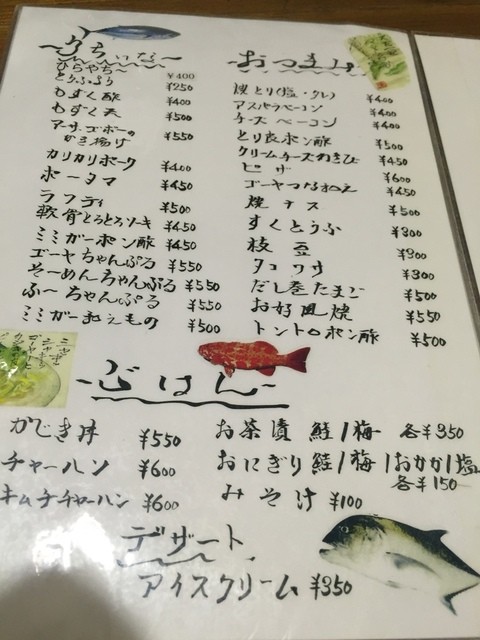 うちなー
ひらやちー ¥400
とうふよう ¥250
もずく酢 ¥400
もずく天 ¥500
アーサ、ゴボーのかき揚げ ¥550
カリカリポーク ¥400
ポータマ ¥450
ラフティ ¥500
軟骨とろとろソーキ ¥450
ミミガーポン酢 ¥450
ゴーヤちゃんぷる ¥550
そーめんちゃんぷる ¥550
ふーちゃんぷる ¥550
ミミガー和えもの ¥500
おつまみ
焼とり(塩・タレ) ¥400
アスパラベーコン ¥400
チーズベーコン ¥400
とり皮ポン酢 ¥500
クリームチーズわさび ¥450
ピザ ¥600
ゴーヤつなあえ ¥450
焼ナス ¥500
すくとうふ ¥300
枝豆 ¥300
タコワサ ¥300
だし巻たまご ¥500
お好風焼 ¥550
トントロポン酢 ¥500
ごはん
かじき丼 ¥550
チャーハン ¥600
キムチチャーハン ¥600
お茶漬 鮭/梅 各¥350
おにぎり鮭/梅/おかか/塩 各¥150
みそ汁 ¥100
デザート
アイスクリーム ¥350